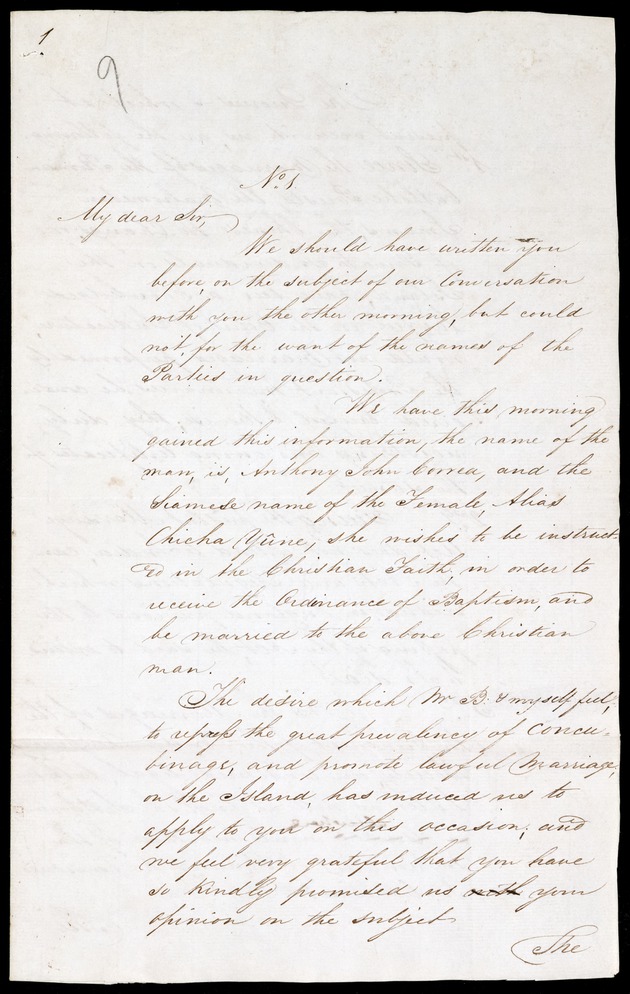 1
9
No. 1.
My dear Sir,
We should have written you
before, on the subject of our Conversation
with you the other morning, but could
not, for the want of the names of the
Parties in question.
We have this morning
gained this information, the name of the
man, is, Anthony John Correa, and the
Siamese name of the Female, Alias
Chicha Yûne, she wishes to be instruct-
ed in the Christian Faith, in order to
receive the Ordinance of Baptism, and
be married to the above Christian
man.
The desire which Mr B. & myself feel,
to repress the great prevalency of Concu-
binage, and promote lawful Marriage,
on the Island, has induced us to
apply to you on this occasion, and
we feel very grateful that you have
so kindly promised us with your
opinion on the subject
The